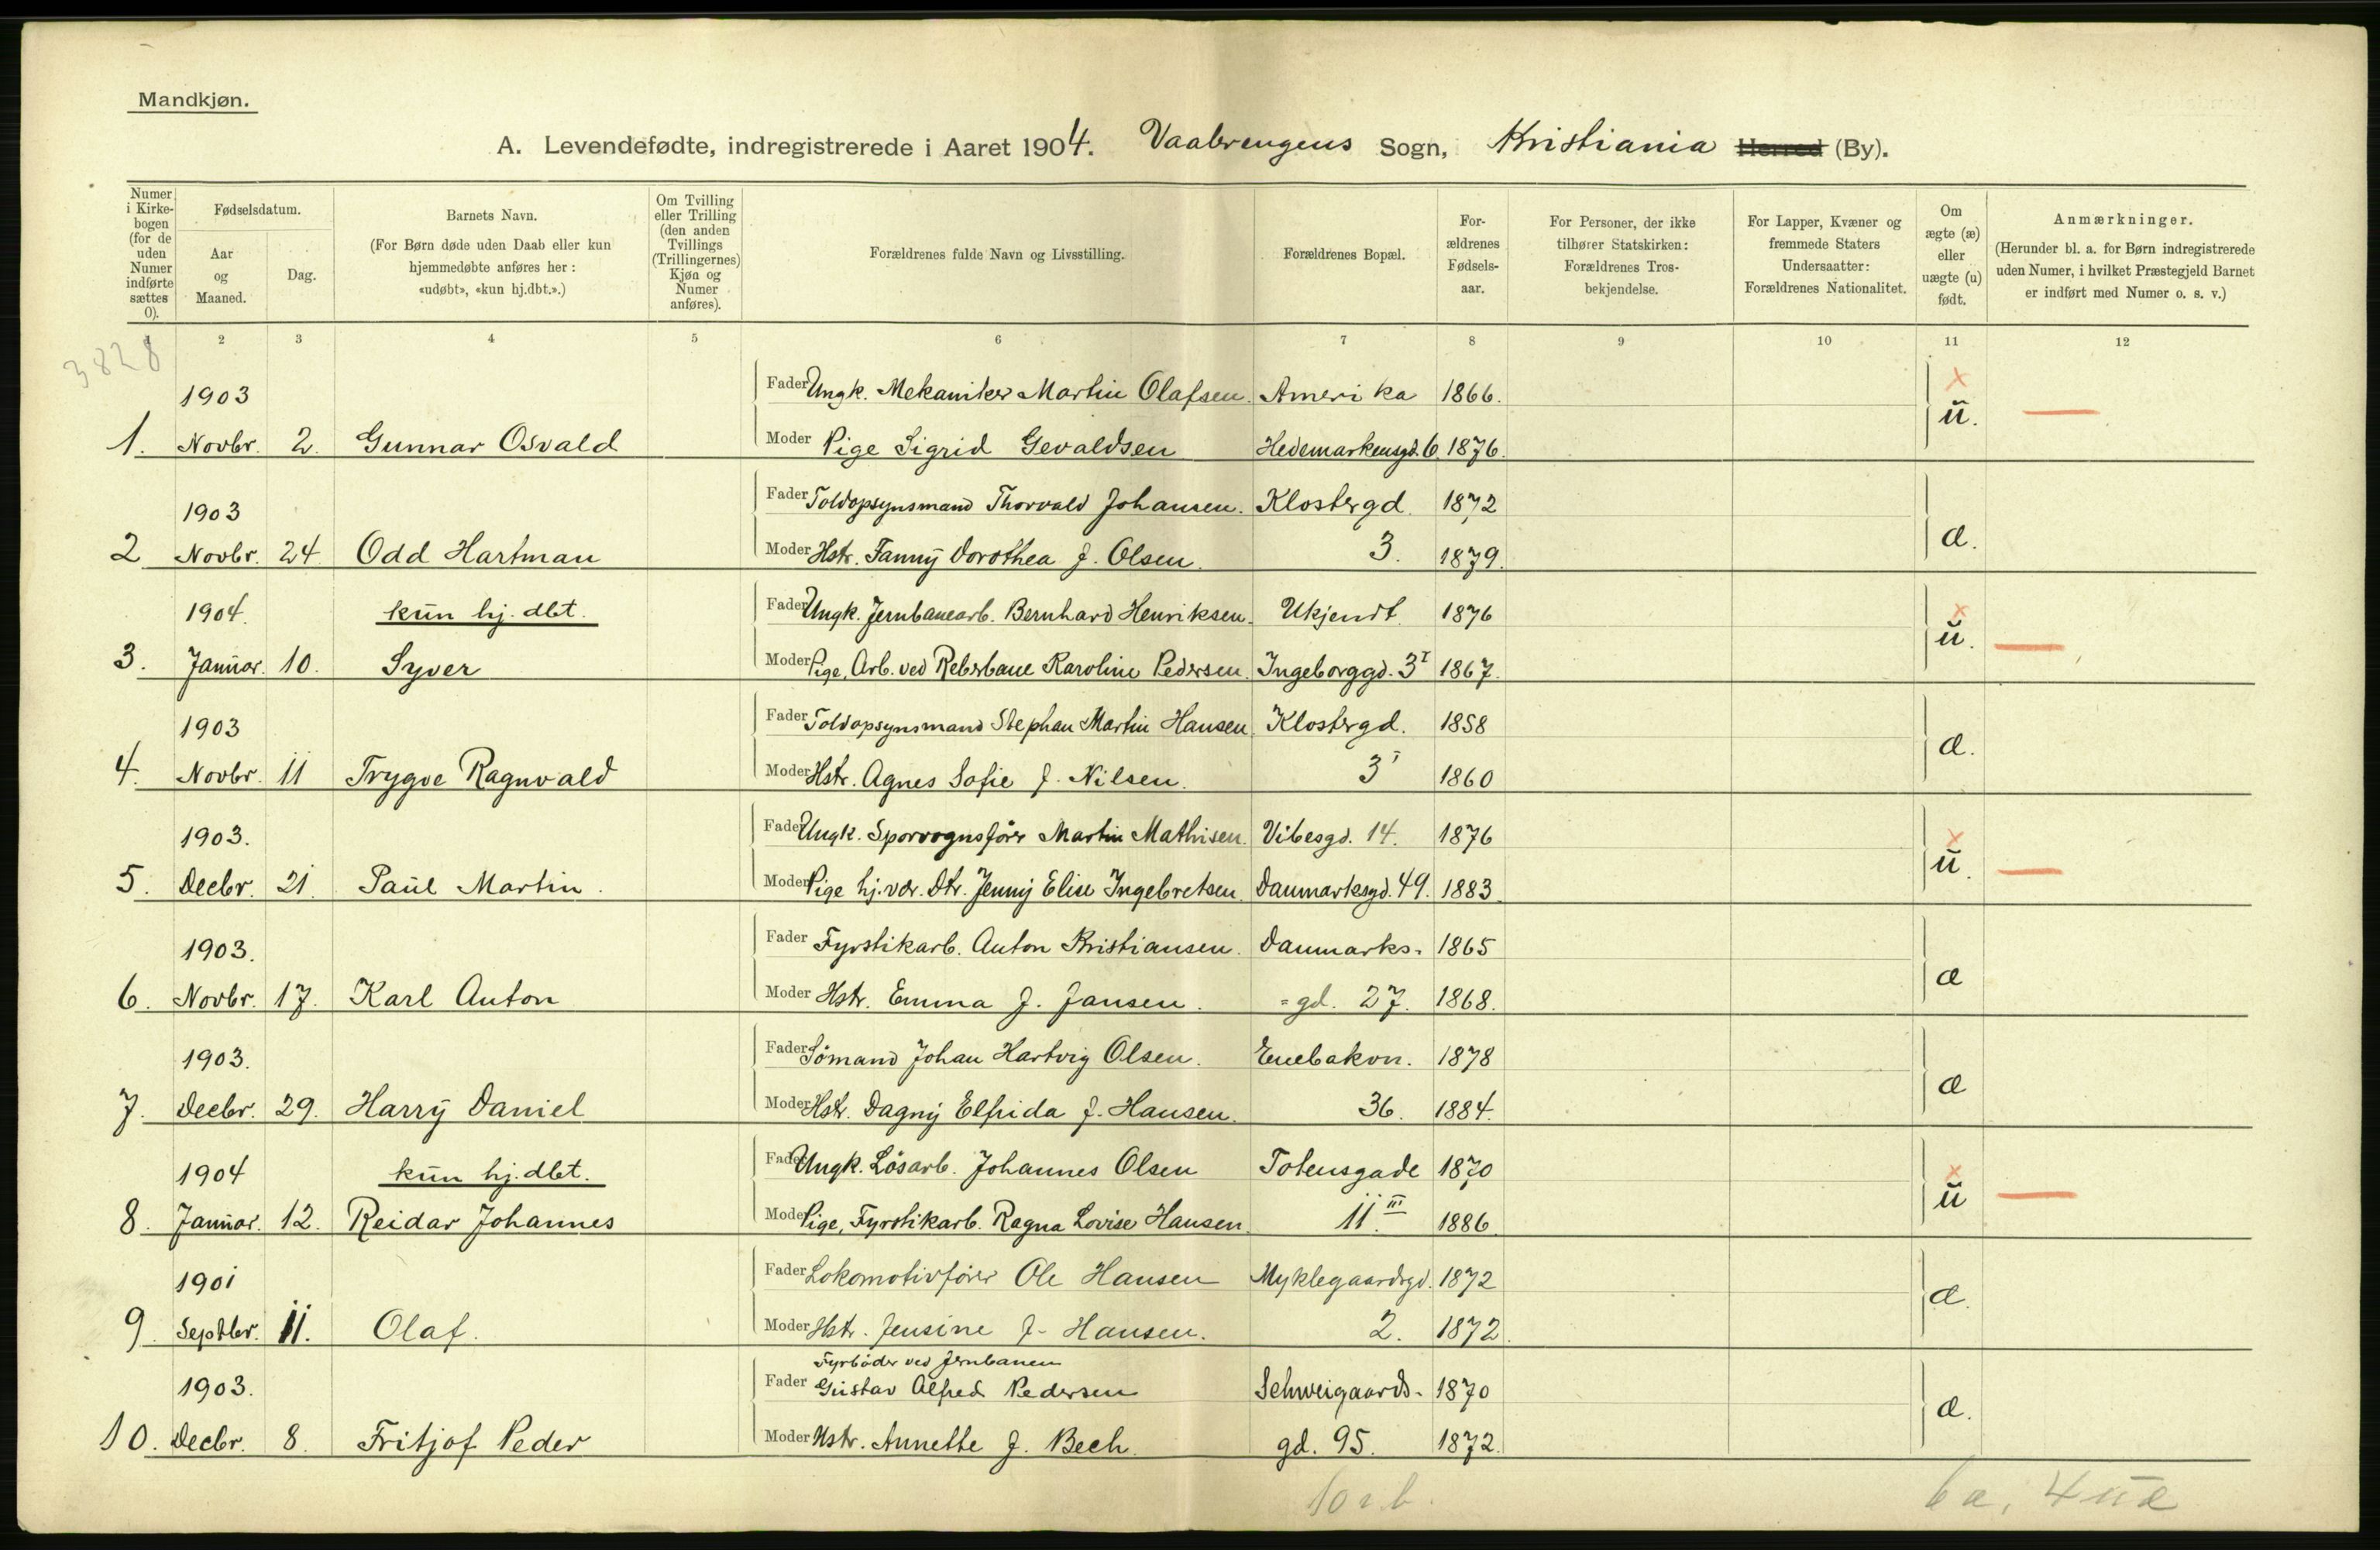 Mandkjøn.
A. Levendefødte, indregistrerede i Aaret 1904. Vaalerengens Sogn, Kristiania Herred (By).
Numer i Kirke-bogen (for de uden Numer indførte sættes 0).
Fødselsdatum.
Aar og Maaned.
Dag.
Barnets Navn.
(For Børn døde uden Daab eller kun hjemmedøbte anføres her: «udøbt», «kun hj.dbt.».)
Om Tvilling eller Trilling (den anden Tvillings (Trillingernes) Kjøn og Numer anføres).
Forældrenes fulde Navn og Livsstilling.
Forældrenes Bopæl.
For-ældrenes Fødsels-aar.
For Personer, der ikke tilhører Statskirken: Forældrenes Tros-bekjendelse.
For Lapper, Kvæner og fremmede Staters Undersaatter: Forældrenes Nationalitet.
Om ægte (æ) eller uægte (u) født.
Anmærkninger.
(Herunder bl. a. for Børn indregistrerede uden Numer, i hvilket Præstegjeld Barnet er indført med Numer o. s. v.)
1 2 3 4 5 6 7 8 9 10 11 12
3828
1903 Fader Ungk. Mekaniker Martin Olafsen. Amerika 1866. x
1. Novbr. 2. Gunnar Osvald Moder Pige Sigrid Gevaldsen Hedemarkensgd. 6. 1876. ü.
1903 Fader Toldopsynsmand Thorvald Johansen. Klostergd. 1872
2 Novbr. 24 Odd Hartman Moder Hstr. Fanny Dorothea f. Olsen. 3. 1879. æ.
1904. kun hj. dbt. Fader Ungk. Jernbanearb. Bernhard Henriksen. Ukjendt. 1876 x
3. Januar. 10. Syver Moder Pige, Arb. ved Reberbane Karoline Pedersen. Ingeborggd. 3 I 1867. ü.
1903 Fader Toldopsynsmand Stephan Martin Hansen. Klostergd. 1858
4. Novbr. 11 Trygve Ragnvald Moder Hstr. Agnes Sofie f. Nilsen. 3 I 1860 æ.
1903. Fader Ungk. Sporvognsfører Martin Mathisen. Vibesgd. 14. 1876 x
5. Decbr. 21. Paul Martin. Moder Pige hj.vær. Dtr. Jenny Elise Ingebretsen. Danmarksgd. 49. 1883. ü.
1903. Fader Fyrstikarb. Anton Kristiansen. Danmarks- 1865
6. Novbr. 17. Karl Anton Moder Hstr. Emma f. Jansen. =gd. 27. 1868. æ
1903. Fader Sömand Johan Hartvig Olsen. Enebakvn. 1878
7. Decbr. 29. Harry Daniel Moder Hstr. Dagny Elfrida f. Hansen. 36. 1884. æ
1904 kun hj. dbt. Fader Ungk. Lösarb. Johannes Olsen Totensgade 1870 x
8. Januar. 12. Reidar Johannes Moder Pige, Fyrstikarb. Ragna Lovise Hansen. 11. III 1886. ü
1901 Fader Lokomotivfører Ole Hansen Myklegaardsgd. 1872
9. Septbr. 11. Olaf. Moder Hstr. Jensine f. Hansen. 2. 1872. æ.
Fyrböder ved Jernbanen
1903. Fader Gustav Alfred Pedersen Schweigaards- 1870
10. Decbr. 8. Fritjof Peder Moder Hstr. Annette f. Bech. gd. 95. 1872. æ.
6æ, 4uæ